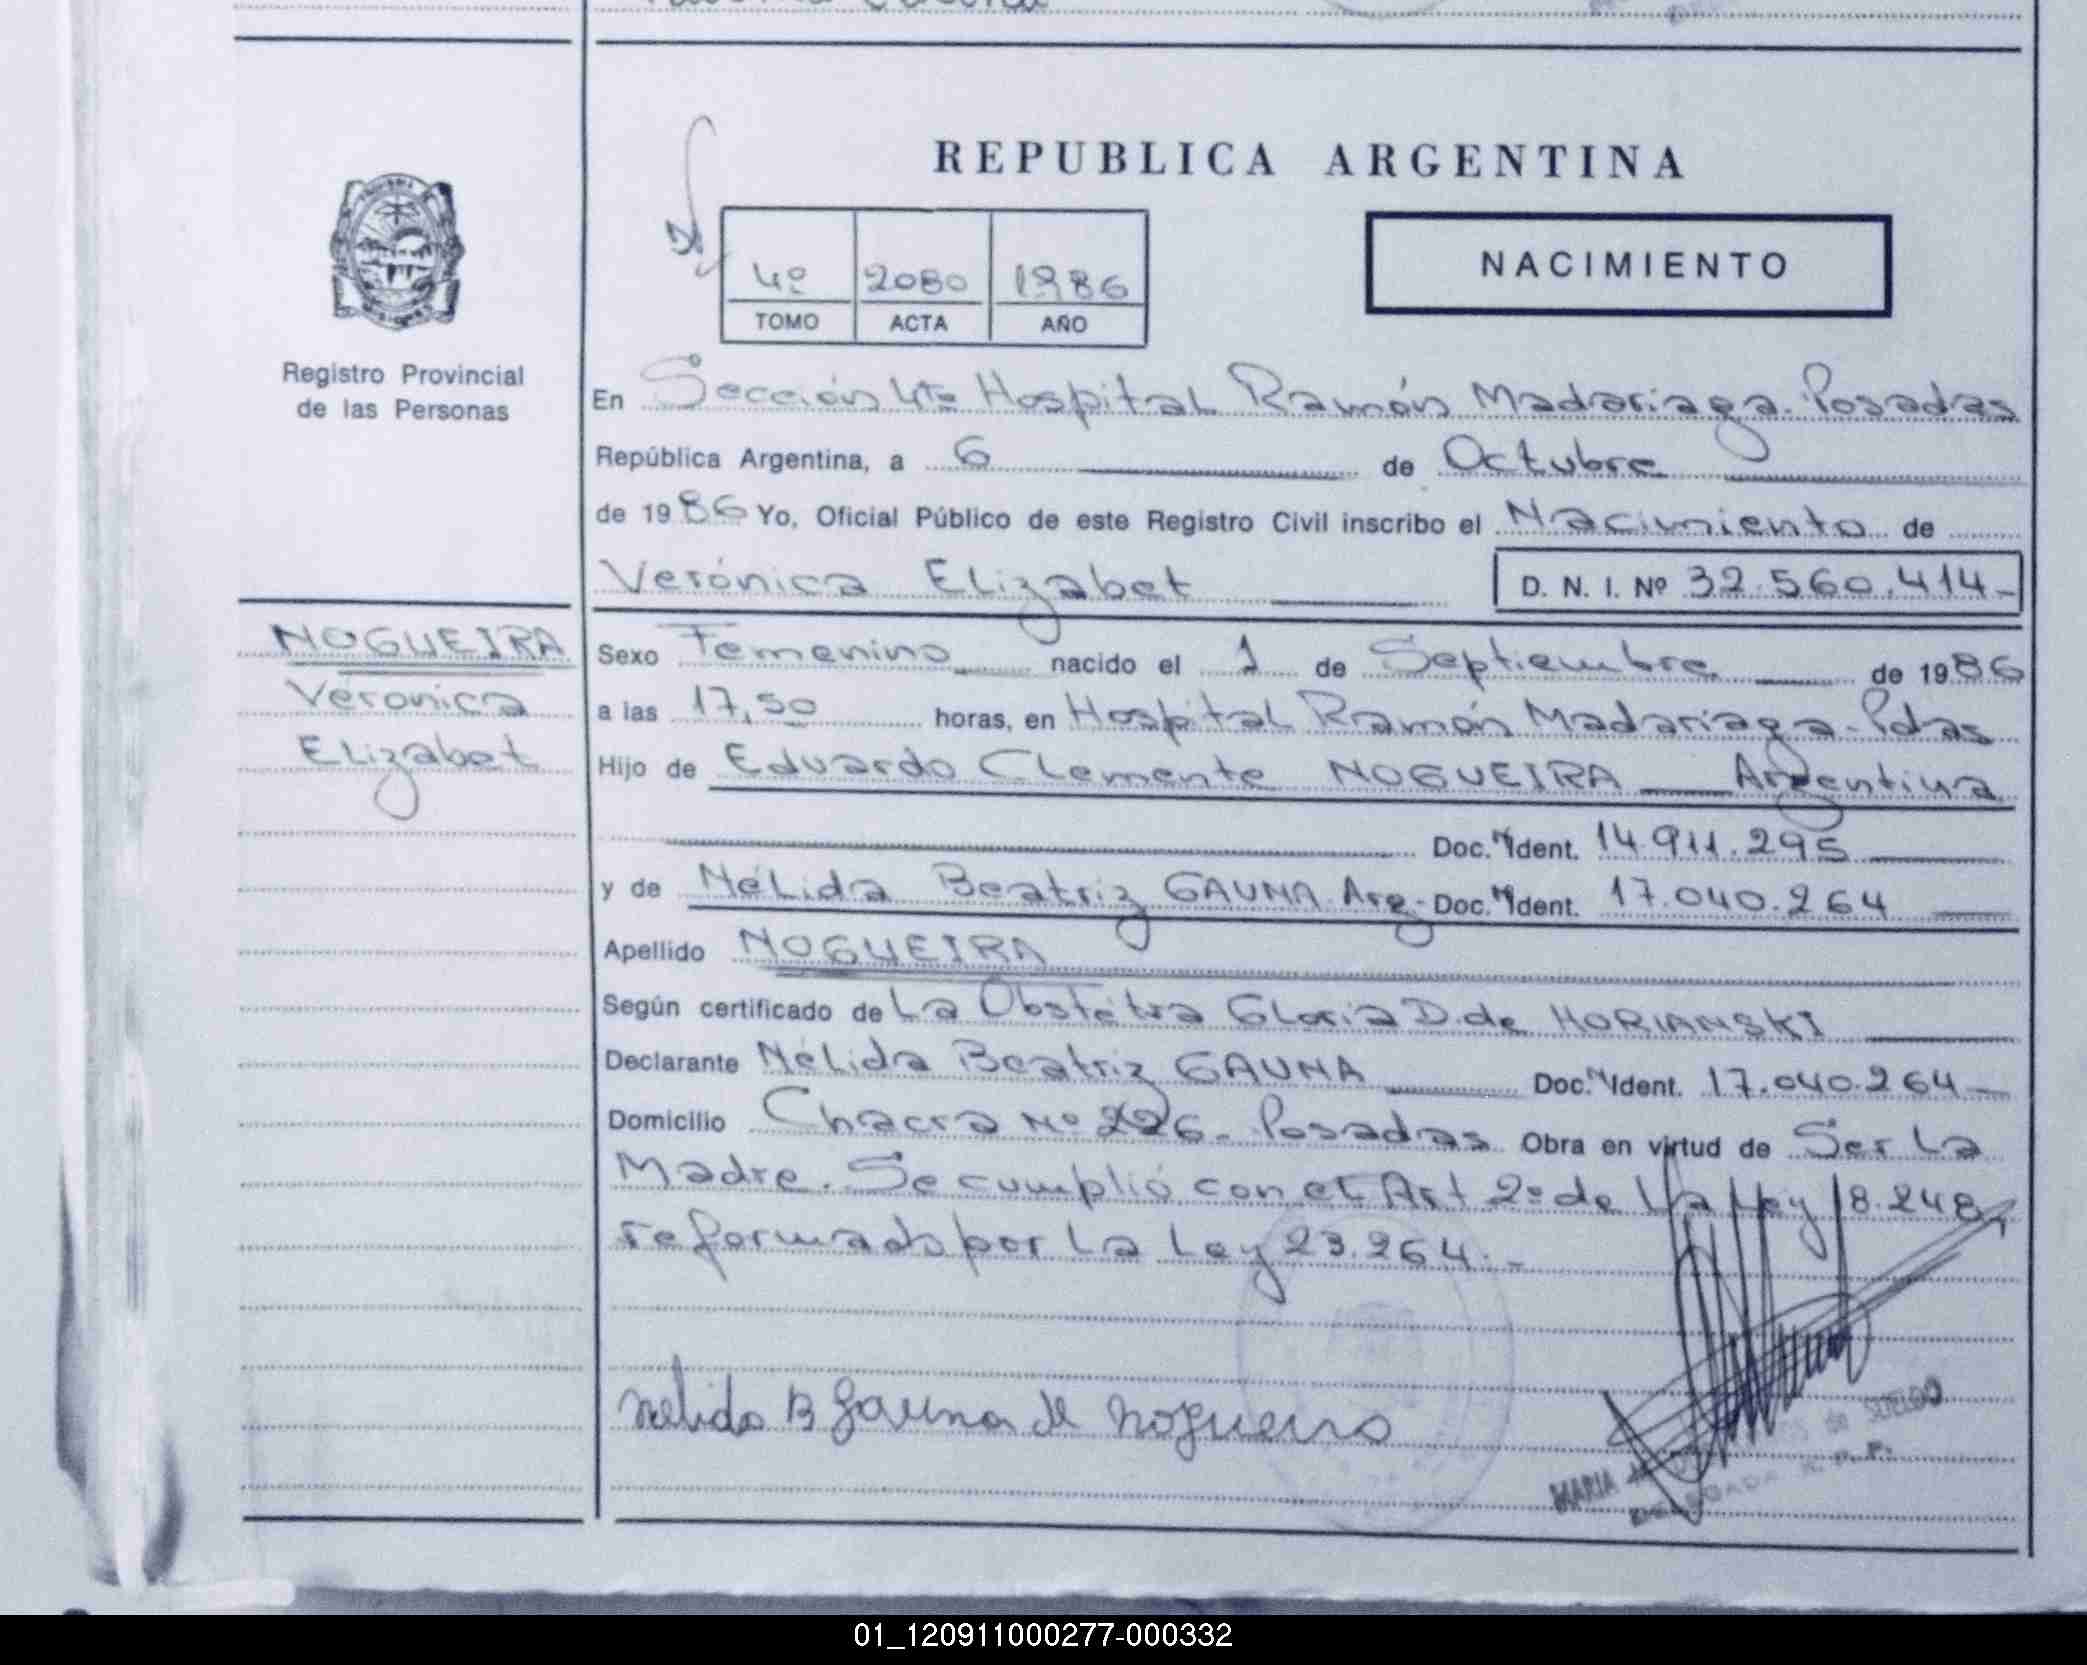 REPUBLICA ARGENTINA
4º 2080 1986
TOMO ACTA AÑO
NACIMIENTO
Registro Provincial
de las Personas
En Sección 4ta Hospital Ramón Madariaga. Posadas
República Argentina, a 6 de Octubre
de 1986 Yo, Oficial Público de este Registro Civil inscribo el Nacimiento de
Verónica Elizabet
D. N. I. Nº 32.560.414-
NOGUEIRA
Veronica
Elizabet
Sexo Femenino nacido el 1 de Septiembre de 1986
a las 17,50 horas, en Hospital Ramón Madariaga-Pdas
Hijo de Eduardo Clemente NOGUEIRA Argentina
Doc. Ident. 14.911.295
y de Nélida Beatriz GAUNA Arg- Doc. Ident. 17.040.264
Apellido NOGUEIRA
Según certificado de La Obstetra Gloria D. de HORIANSKI
Declarante Nélida Beatriz GAUNA Doc. Ident. 17.040.264-
Domicilio Chacra Nº 226- Posadas Obra en virtud de Ser La
Madre. Se cumplió con el Art 2º de La Ley 18.248,
reformado por La Ley 23.264.-
Nelida B Gauna de Nogueira
MARIA de SUELDO
R. P. P.
01_120911000277-000332